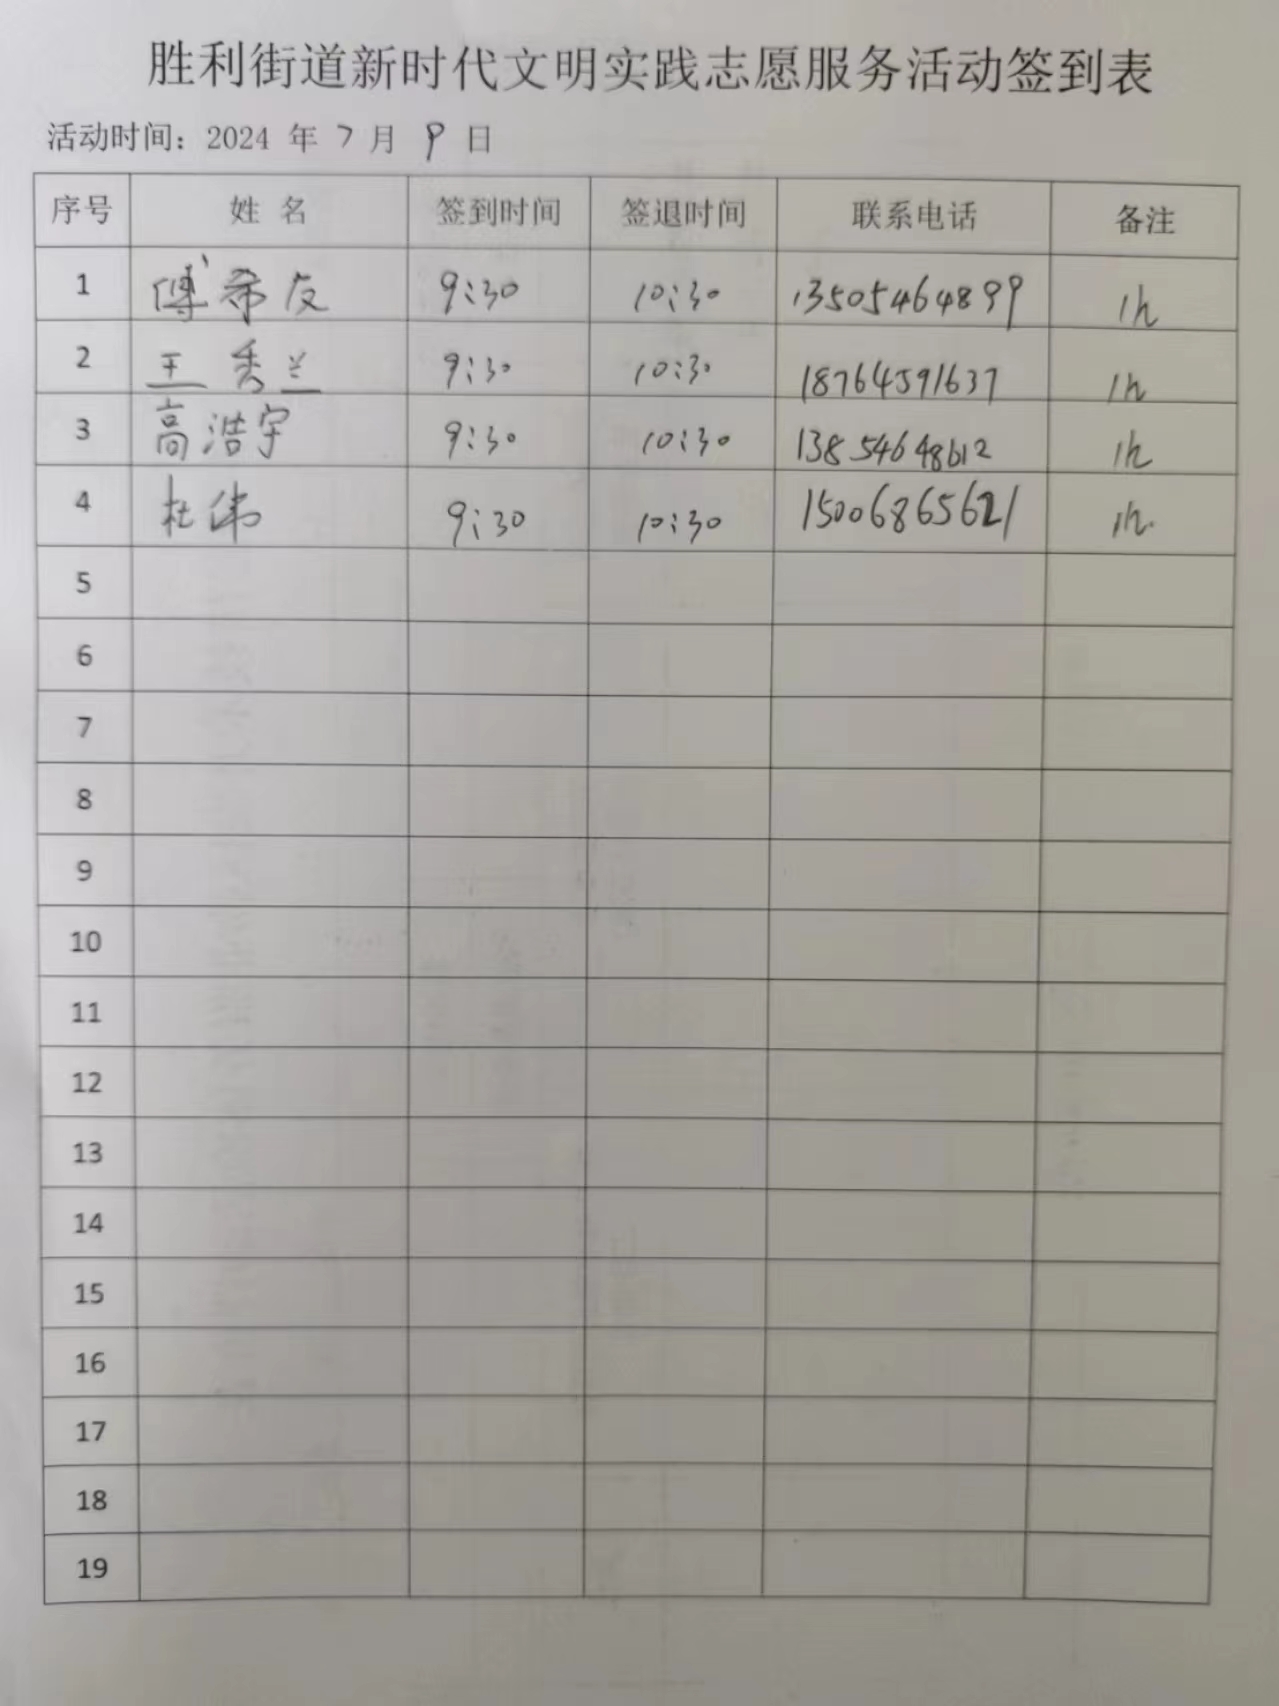 胜利街道新时代文明实践志愿服务活动签到表
活动时间：2024 年 7 月 9 日
序号 姓 名 签到时间 签退时间 联系电话 备注
1 傅希友 9:30 10:30 13505464899 1h
2 王秀兰 9:30 10:30 18764591637 1h
3 高浩宇 9:30 10:30 13854648612 1h
4 杜伟 9:30 10:30 15006865621 1h
5
6
7
8
9
10
11
12
13
14
15
16
17
18
19